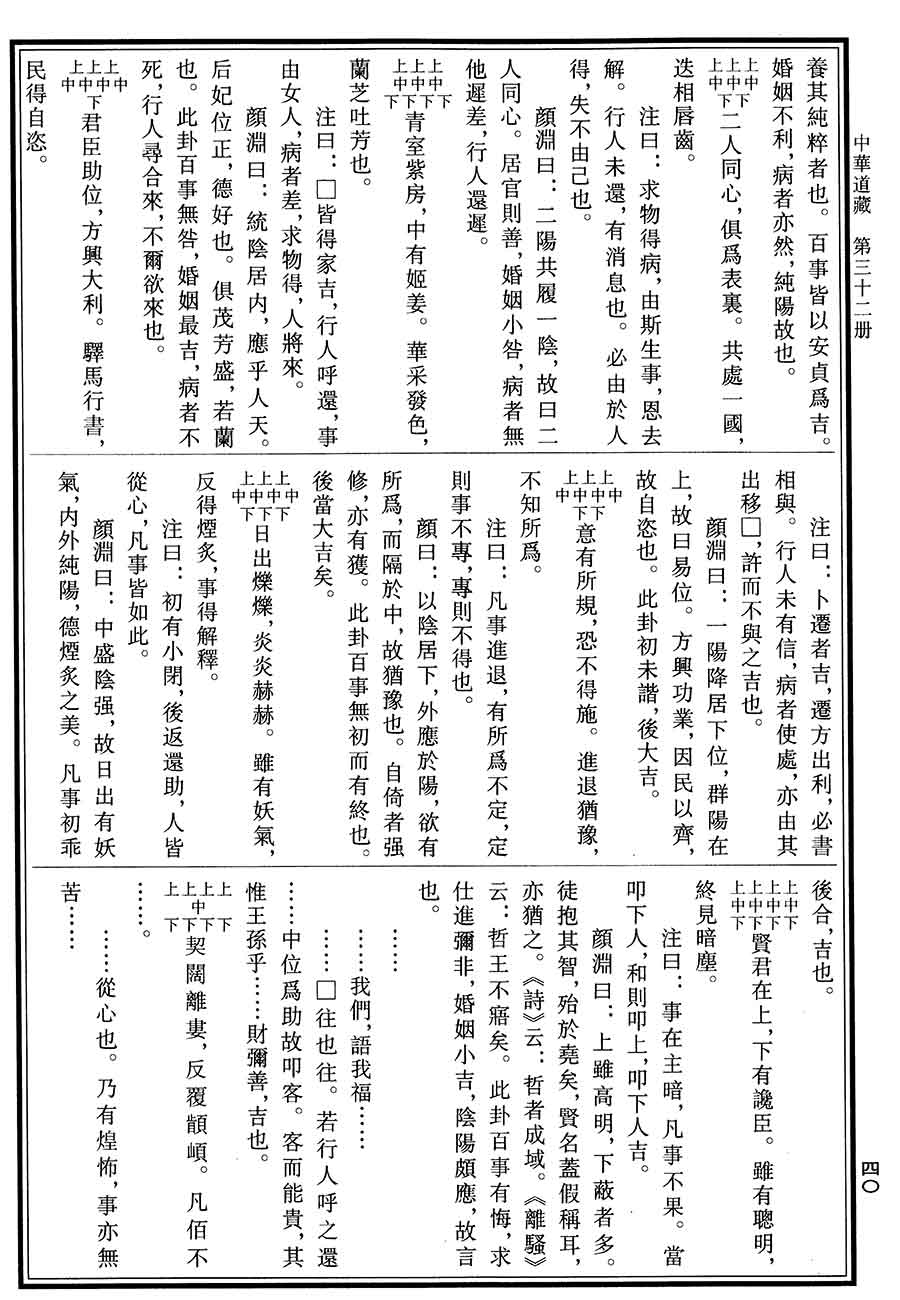 中華道藏　第三十二册
四〇
養其純粹者也。百事皆以安貞爲吉。
婚姻不利，病者亦然，純陽故也。
二人同心，俱爲表裏。共處一國，
迭相唇齒。
注曰：求物得病，由斯生事，恩去
解。行人未還，有消息也。必由於人
得，失不由己也。
顔淵曰：二陽共履一陰，故曰二
人同心。居官則善，婚姻小咎，病者無
他遲差，行人還遲。
青室紫房，中有姬姜。華采發色，
蘭芝吐芳也。
注曰：□皆得家吉，行人呼還，事
由女人，病者差，求物得，人將來。
顔淵曰：統陰居内，應乎人天。
后妃位正，德好也。俱茂芳盛，若蘭
也。此卦百事無咎，婚姻最吉，病者不
死，行人尋合來，不爾欲來也。
君臣助位，方興大利。驛馬行書，
民得自恣。
注曰：卜遷者吉，遷方出利，必書
相與。行人未有信，病者使處，亦由其
出移□，許而不與之吉也。
顔淵曰：一陽降居下位，群陽在
上，故曰易位。方興功業，因民以齊，
故自恣也。此卦初未諧，後大吉。
意有所規，恐不得施。進退猶豫，
不知所爲。
注曰：凡事進退，有所爲不定，定
則事不專，專則不得也。
顔曰：以陰居下，外應於陽，欲有
所爲，而隔於中，故猶豫也。自倚者强
修，亦有獲。此卦百事無初而有終也。
後當大吉矣。
日出爍爍，炎炎赫赫。雖有妖氣，
反得煙炙，事得解釋。
注曰：初有小閉，後返還助，人皆
從心，凡事皆如此。
顔淵曰：中盛陰强，故日出有妖
氣，内外純陽，德煙炙之美。凡事初乖
後合，吉也。
賢君在上，下有讒臣。雖有聰明，
終見暗塵。
注曰：事在主暗，凡事不果。當
叩下人，和則叩上，叩下人吉。
顔淵曰：上雖高明，下蔽者多。
徒抱其智，殆於堯矣，賢名蓋假稱耳，
亦猶之。《詩》云：哲者成域。《離騷》
云：哲王不寤矣。此卦百事有悔，求
仕進彌非，婚姻小吉，陰陽頗應，故言
也。
……
……我們，語我福……
……□往也往。若行人呼之還
……中位爲助故叩客。客而能貴，其
惟王孫乎……財彌善，吉也。
契闊離婁，反覆顦𩑔。凡佰不
……。
……從心也。乃有煌怖，事亦無
苦……